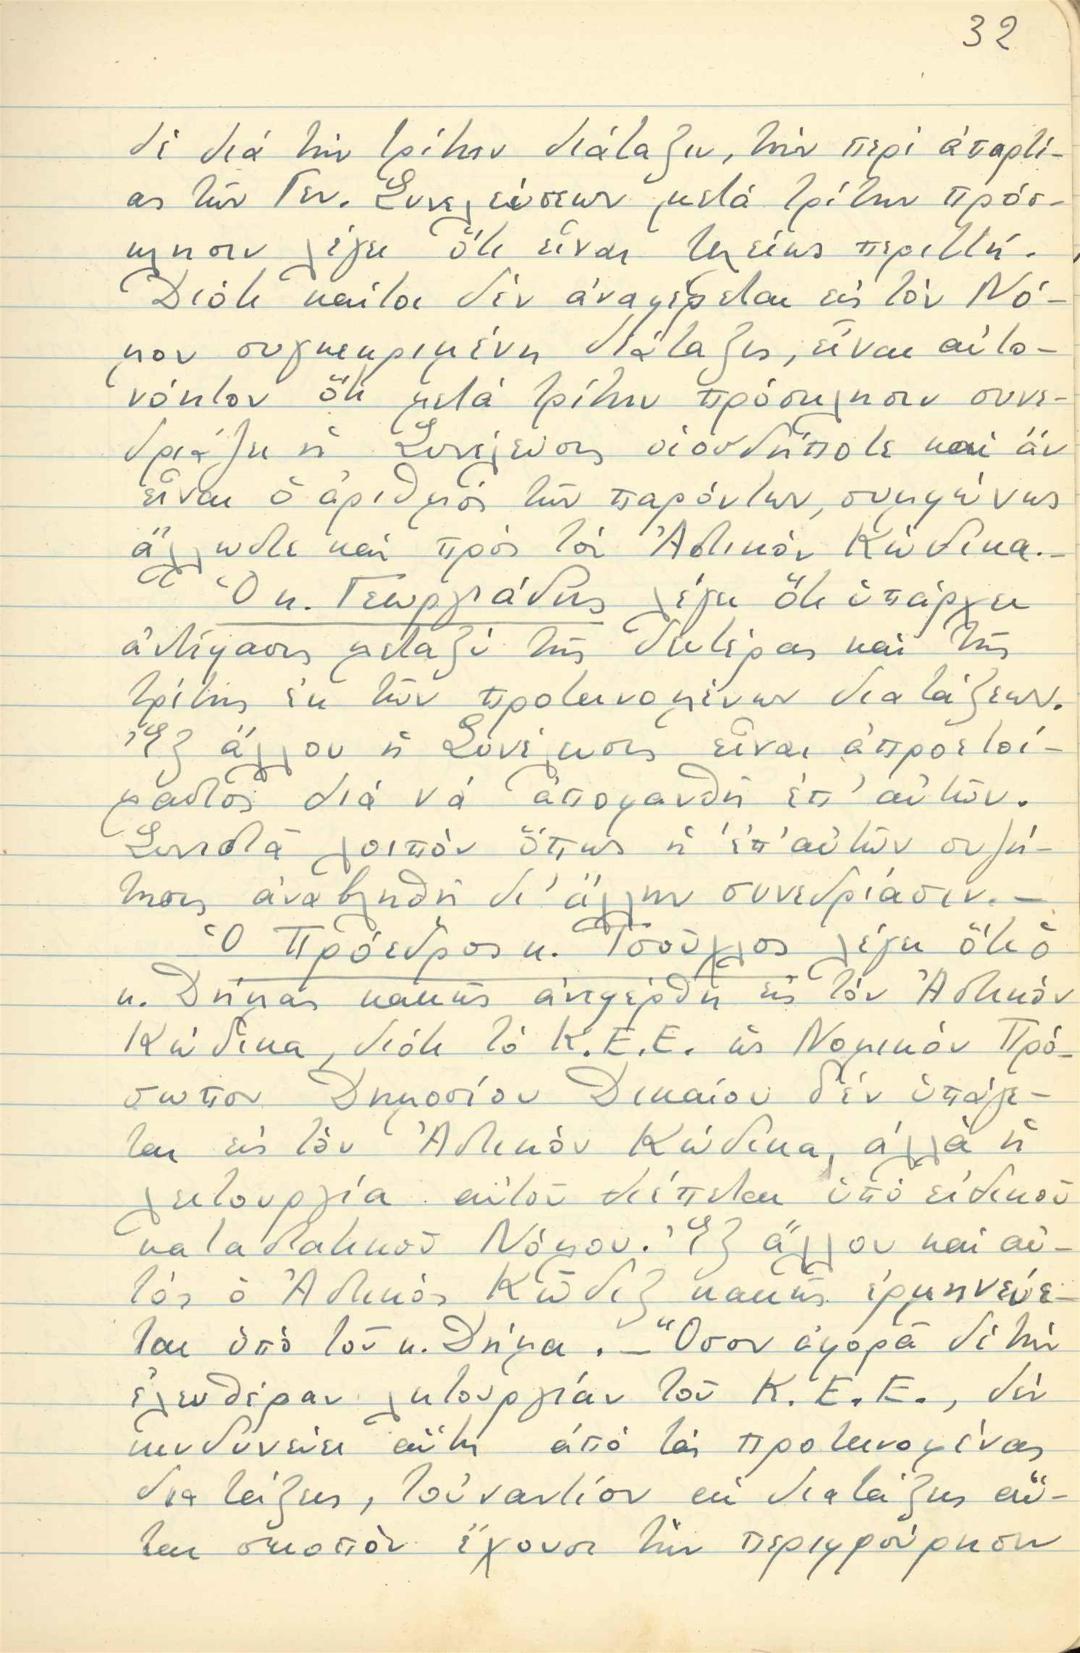 32
δέ διά τήν τρίτην διάταξιν, τήν περί ἀπαρτί-
ας τῶν Γεν. Συνελεύσεων μετά τρίτην πρόσ-
κλησιν λέγει ὅτι εἶναι τελείως περιττή.
Διότι καίτοι δέν ἀναφέρεται εἰς τόν Νό-
μον συγκεκριμένη διάταξις, εἶναι αὐτο-
νόητον ὅτι μετά τρίτην πρόσκλησιν συνε-
δριάζει ἡ Συνέλευσις οἱοσδήποτε καί ἄν
εἶναι ὁ ἀριθμός τῶν παρόντων, συμφώνως
ἄλλωστε καί πρός τόν Ἀστικόν Κώδικα.-
Ὁ κ. Γεωργιάδης λέγει ὅτι ὑπάρχει
ἀντίφασις μεταξύ τῆς δευτέρας καί τῆς
τρίτης ἐκ τῶν προτεινομένων διατάξεων.
Ἐξ ἄλλου ἡ Συνέλευσις εἶναι ἀπροετοί-
μαστος διά νά ἀποφανθῆ ἐπ' αὐτῶν.
Συνιστᾶ λοιπόν ὅπως ἡ ἐπ' αὐτῶν συζή-
τησις ἀναβληθῆ δι' ἄλλην συνεδρίασιν.-
Ὁ Πρόεδρος κ. Τσοῦλλος λέγει ὅτι ὁ
κ. Δήμας κακῶς ἀνεφέρθη εἰς τόν Ἀστικόν
Κώδικα, διότι τό Κ.Ε.Ε. ὡς Νομικόν Πρό-
σωπον Δημοσίου Δικαίου δέν ὑπάγε-
ται εἰς τόν Ἀστικόν Κώδικα, ἀλλά ἡ
λειτουργία αὐτοῦ διέπεται ὑπό εἰδικοῦ
καταστατικοῦ Νόμου. Ἐξ ἄλλου καί αὐ-
τός ὁ Ἀστικός Κῶδιξ κακῶς ἑρμηνεύε-
ται ὑπό τοῦ κ. Δήμα. - Ὅσον ἀφορᾶ δέ τήν
ἐλευθέραν λειτουργίαν τοῦ Κ.Ε.Ε., δέν
κινδυνεύει αὕτη ἀπό τάς προτεινομένας
διατάξεις, τοὐναντίον αἱ διατάξεις αὗ-
ται σκοπόν ἔχουσι τήν περιφρούρησιν